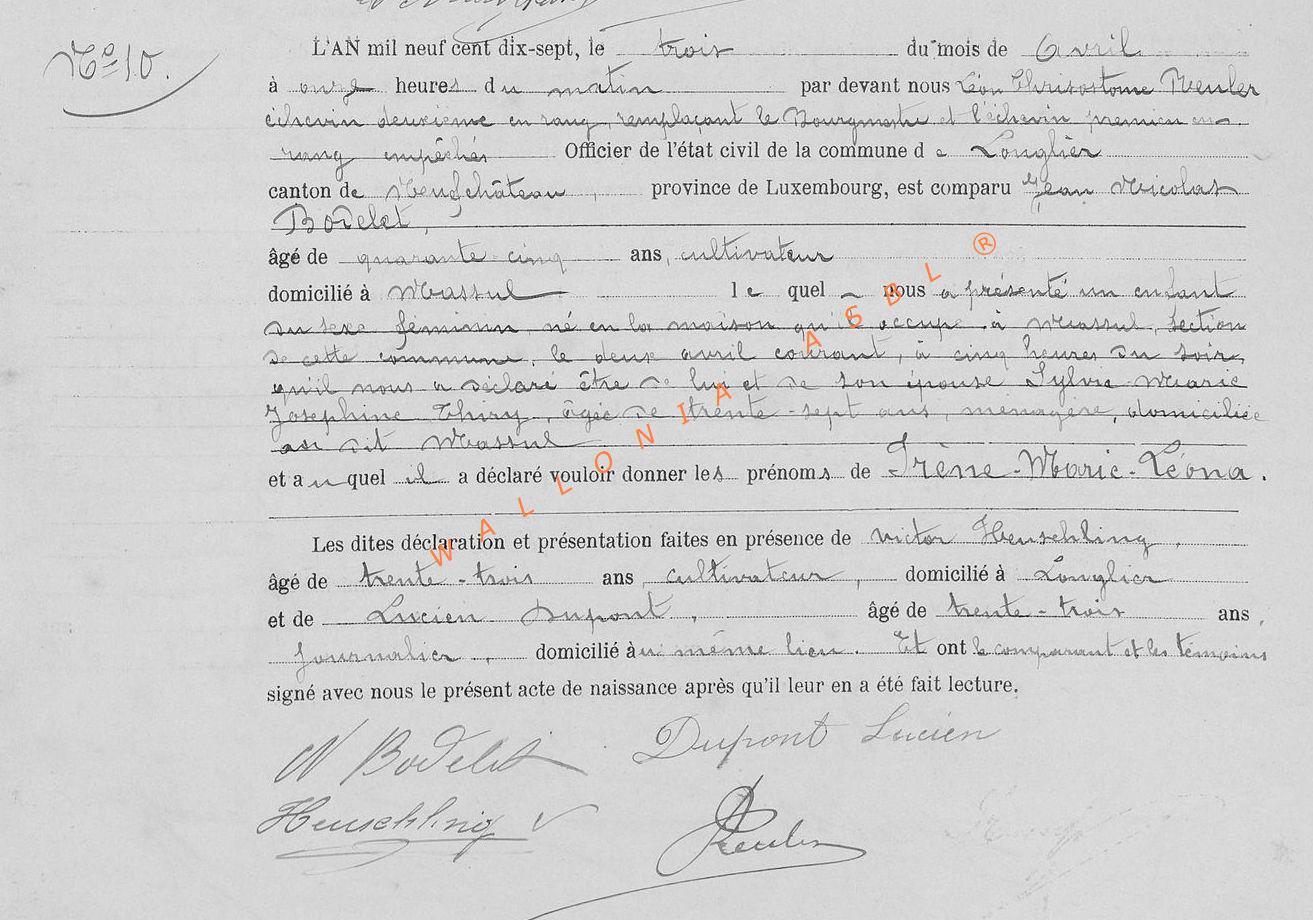 Nº 10.
L'AN mil neuf cent dix-sept, le trois du mois de Avril
à onze heures du matin par devant nous Léon Chrisostome Reuler
échevin deuxième en rang, remplaçant le Bourgmestre et l'échevin premier en
rang empêchés Officier de l'état civil de la commune de Longlier
canton de Neufchâteau, province de Luxembourg, est comparu Jean Nicolas
Bodelet,
âgé de quarante-cinq ans, cultivateur
domicilié à Massul le quel nous a présenté un enfant
du sexe féminin, né en la maison qu'il occupe à Massul, section
de cette commune, le deux avril courant, à cinq heures du soir,
qu'il nous a déclaré être de lui et de son épouse Sylvie Marie
Josephine Thiry, âgée de trente-sept ans, ménagère, domiciliée
au dit Massul
et auquel il a déclaré vouloir donner les prénoms de Irène-Marie-Léona.
Les dites déclaration et présentation faites en présence de Victor Heuschling,
âgé de trente-trois ans, cultivateur, domicilié à Longlier
et de Lucien Dupont, âgé de trente-trois ans,
journalier, domicilié au même lieu. Et ont le comparant et les témoins
signé avec nous le présent acte de naissance après qu'il leur en a été fait lecture.
N Bodelet Dupont Lucien
Heuschling V Reuler
WALLONIA ASBL ®